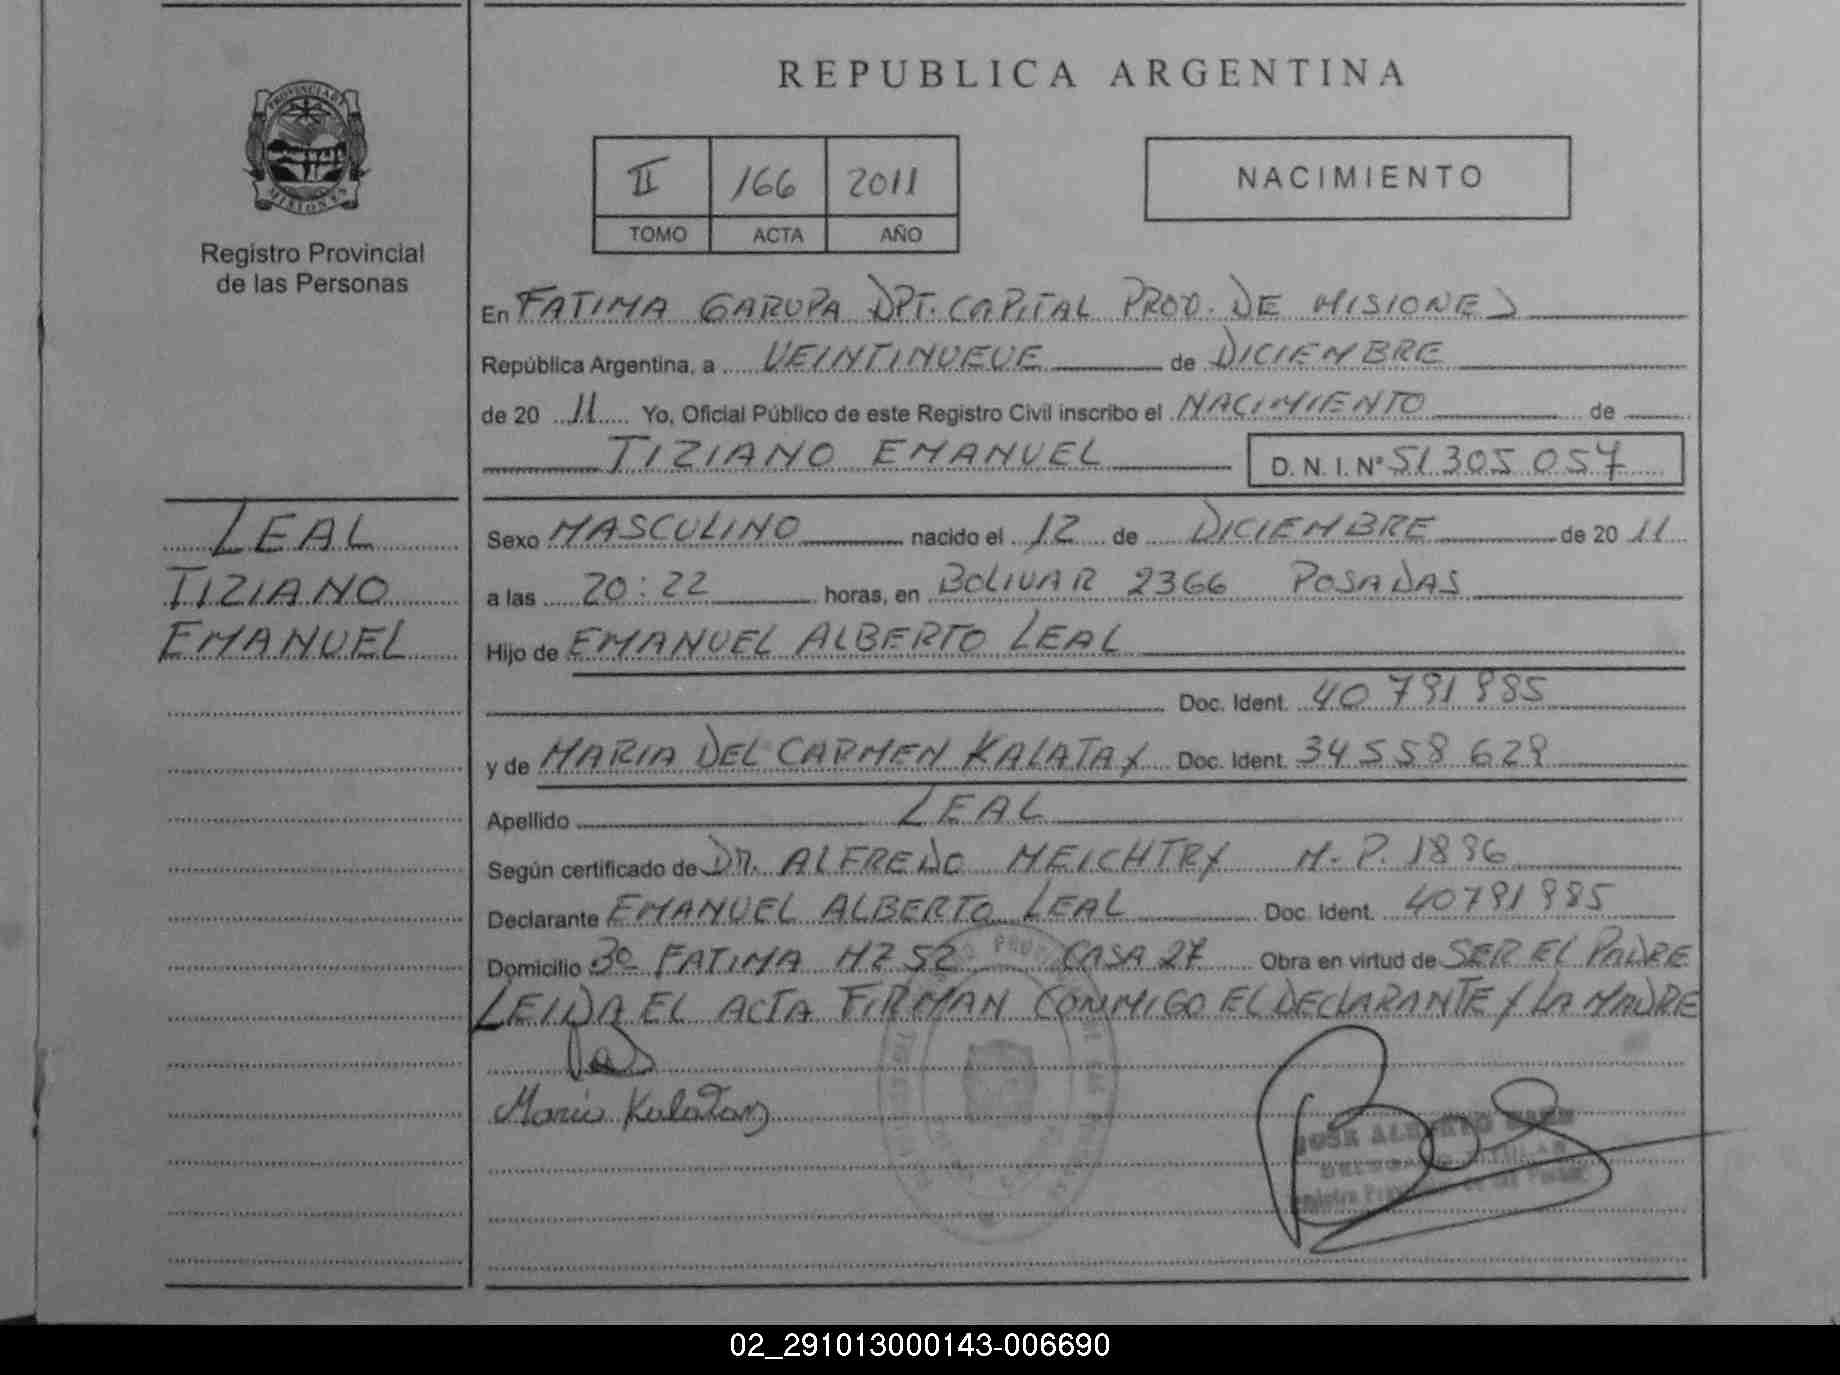 REPUBLICA ARGENTINA
PROVINCIA DE
MISIONES
Registro Provincial
de las Personas
II 166 2011
TOMO ACTA AÑO
NACIMIENTO
En FATIMA GARUPA DPT. CAPITAL PROV. DE MISIONES
República Argentina, a VEINTINUEVE de DICIEMBRE
de 20 11 Yo, Oficial Público de este Registro Civil inscribo el NACIMIENTO de
TIZIANO EMANUEL D. N. I. Nº 51305057
LEAL
TIZIANO
EMANUEL
Sexo MASCULINO nacido el 12 de DICIEMBRE de 20 11
a las 20:22 horas, en BOLIVAR 2366 POSADAS
Hijo de EMANUEL ALBERTO LEAL
Doc. Ident. 40791985
y de MARIA DEL CARMEN KALATAY Doc. Ident.
Apellido LEAL
Según certificado de DR. ALFREDO MEICHTRY M.P.
Declarante EMANUEL ALBERTO LEAL Doc. Ident. 40791985
Domicilio 3º FATIMA MZ 52 CASA 27 Obra en virtud de SER EL PADRE
LEIDA EL ACTA FIRMAN CONMIGO EL DECLARANTE Y LA MADRE
Maria Kalatay
JOSE ALBERTO
DELEGADO TITULAR
Registro Provincial de las Personas
02_291013000143-006690